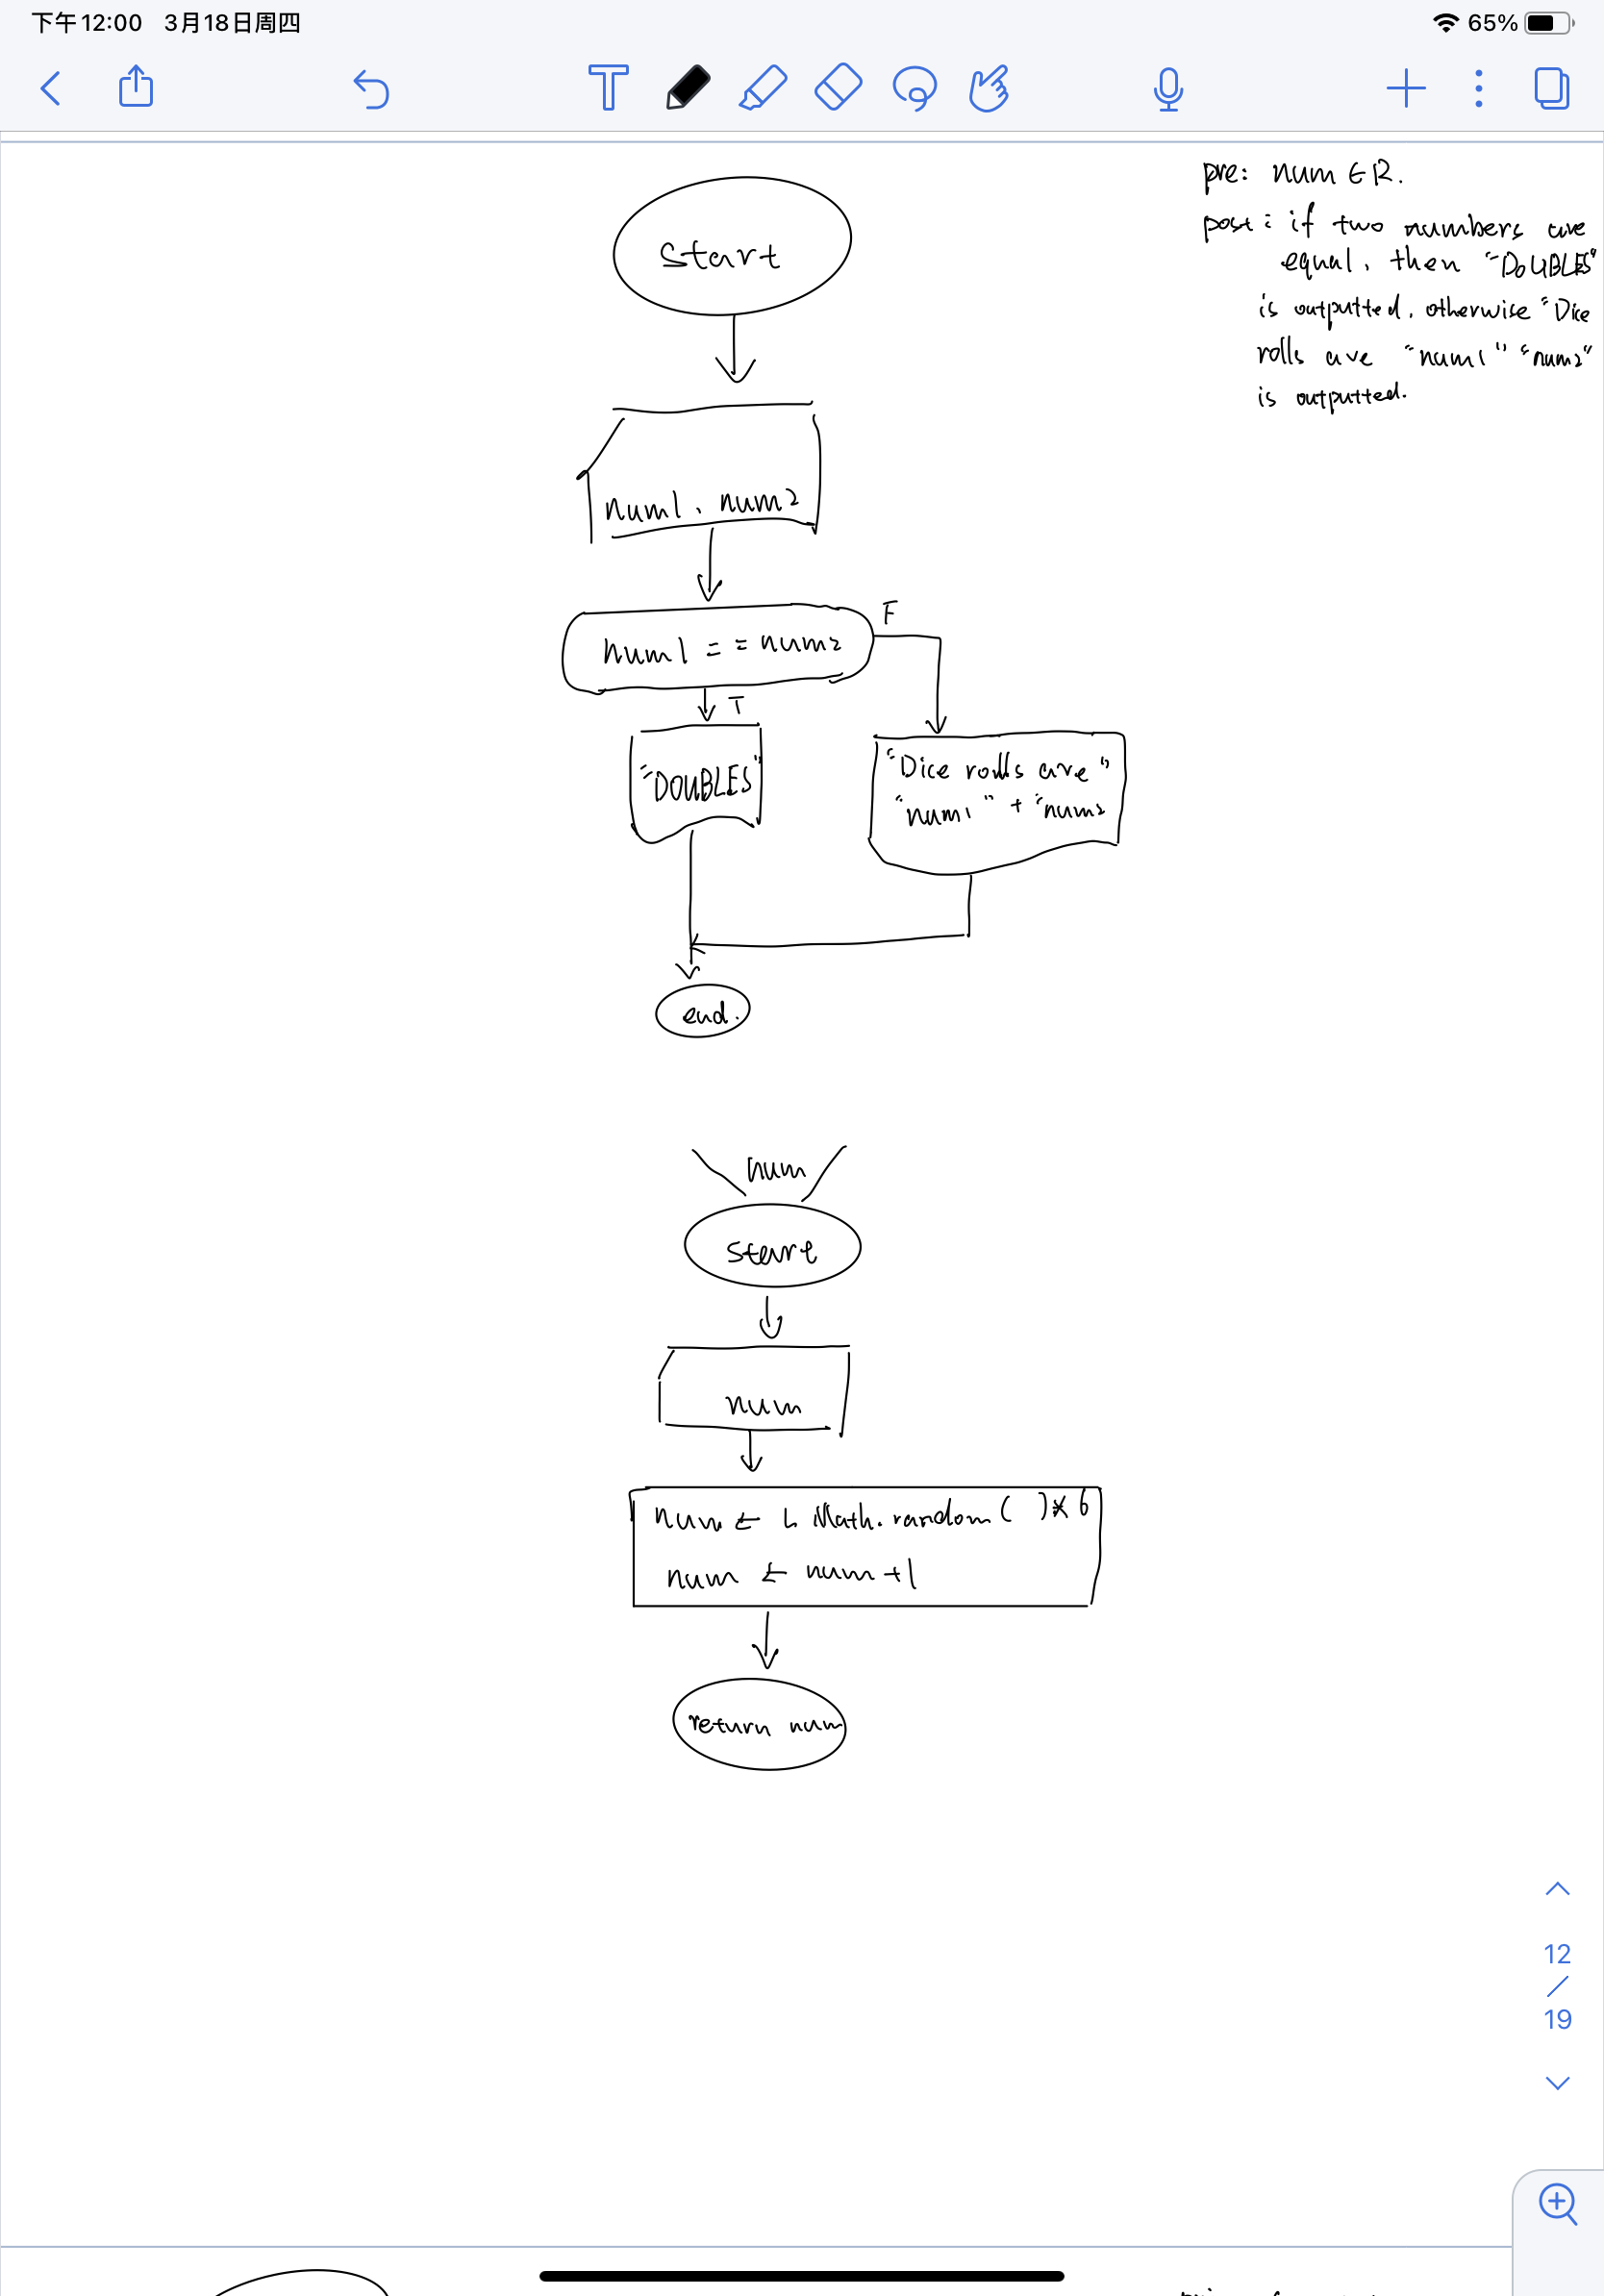 下午12:00 3月18日周四
65%
T
pre: num ∈ R.
post: if two numbers are
equal, then "DOUBLES"
is outputted, otherwise "Dice
rolls are "num1" "num2"
is outputted.
start
num1, num2
num1 == num2
F
T
"DOUBLES"
"Dice rolls are"
"num1" + "num2
end.
num
start
num
num ← ⌊ Math.random( )* 6
num ← num +1
return num
12
/
19